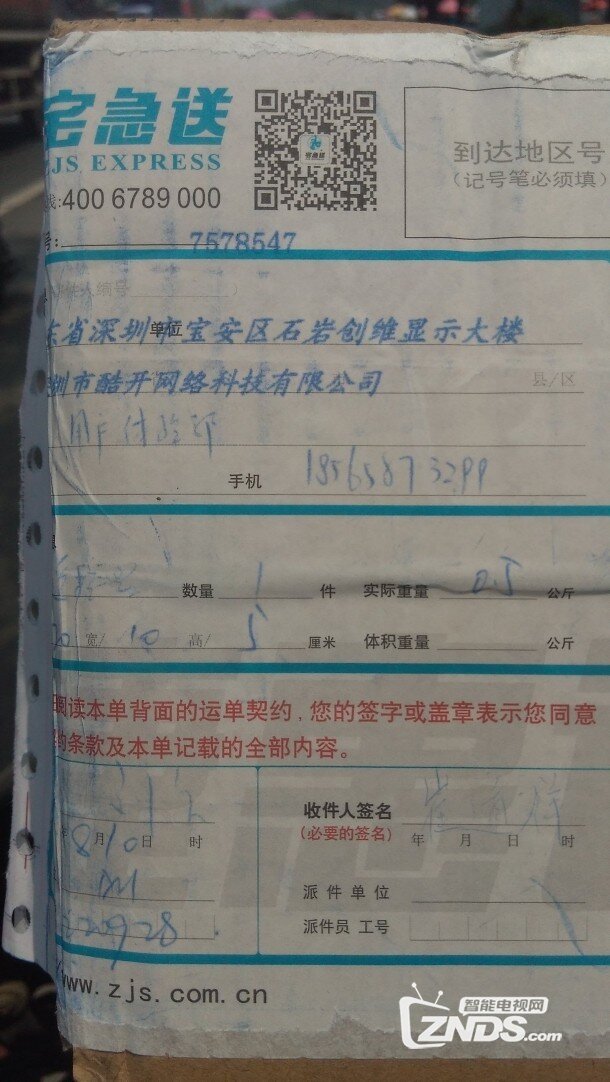 宅急送
ZJS EXPRESS
到达地区号
(记号笔必须填)
线:400 6789 000
号: 7578547
省深圳市宝安区石岩创维显示大楼
单位
圳市酷开网络科技有限公司
县/区
用户体验部
手机 18565873299
数量 1 件 实际重量 0.5 公斤
宽/ 10 高/ 5 厘米 体积重量 公斤
阅读本单背面的运单契约,您的签字或盖章表示您同意
约条款及本单记载的全部内容。
收件人签名
(必要的签名)
年 8月10日 时
年 月 日 时
派件单位
派件员 工号
www.zjs.com.cn
智能电视网
ZNDS.com